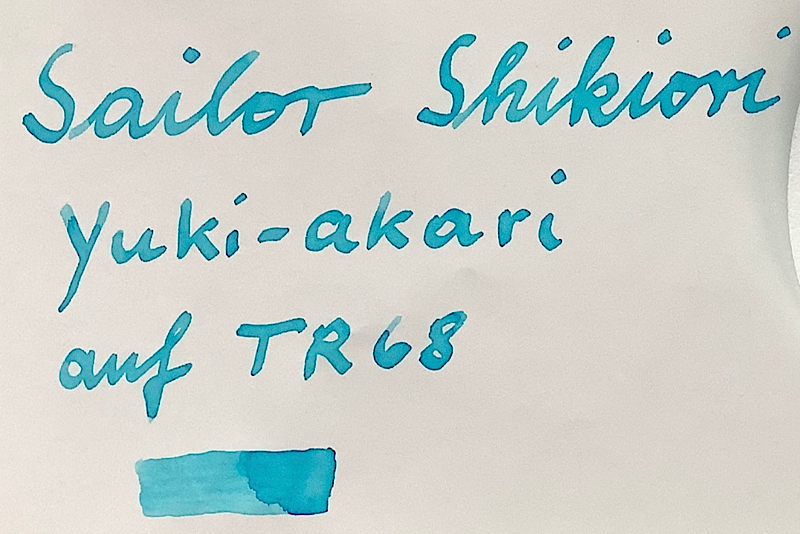 Sailor Shikiori
Yuki-akari
auf TR68